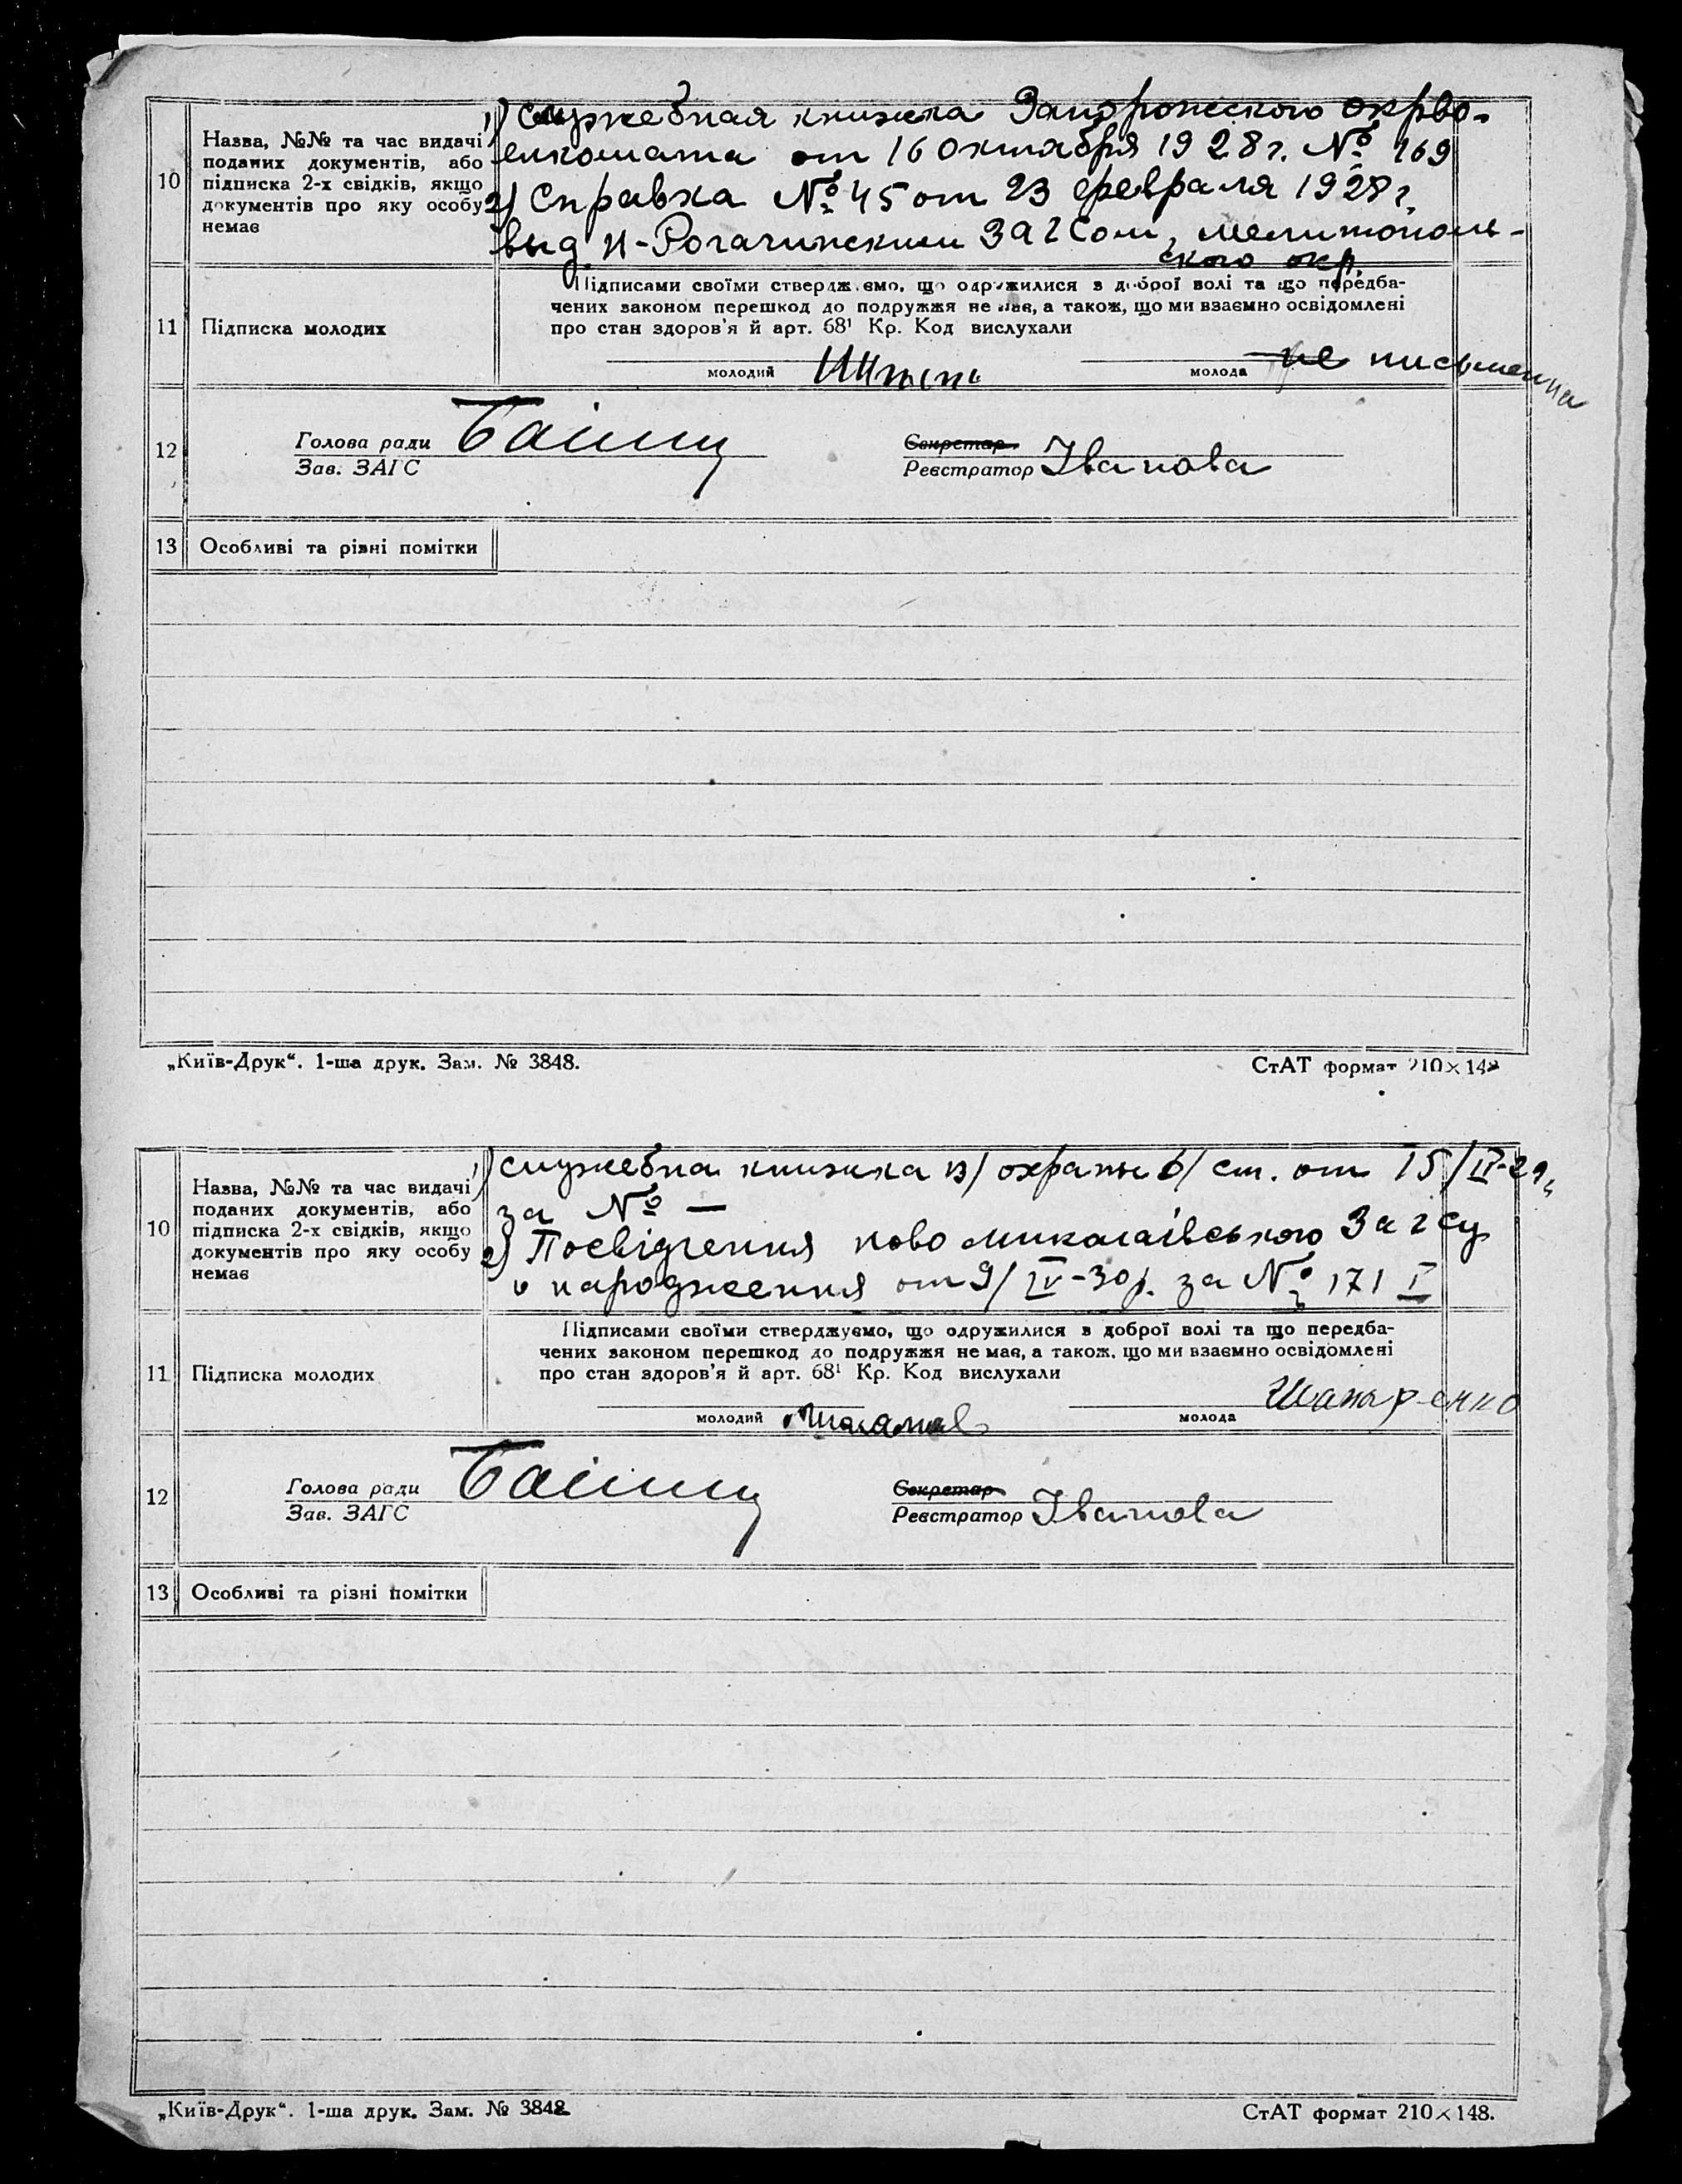 1) служебная книжка Запорожского окрво-
10 Назва, №№ та час видачі поданих документів, або підписка 2-х свідків, якщо документів про яку особу немає
енкомата от 16 октября 1928 г. № 169
2) Справка № 45 от 23 февраля 1928 г.
выд Н-Рогачинским ЗАГСом, мелитополь-
ского окр.
11 Підписка молодих
Підписами своїми стверджуємо, що одружилися з доброї волі та що передба-
чених законом перешкод до подружжя не має, а також, що ми взаємно освідомлені
про стан здоров'я й арт. 68¹ Кр. Код вислухали
молодий молода не письменна
12 Голова ради
Зав. ЗАГС
Секретар
Реєстратор Іванова
13 Особливі та різні помітки
„Київ-Друк“. 1-ша друк. Зам. № 3848. СтАТ формат 210×148
1) служебна книжка из/ охраны б/ ст. от 15/IV-29
10 Назва, №№ та час видачі поданих документів, або підписка 2-х свідків, якщо документів про яку особу немає
за № —
2) Посвідчення ново миколаівського Загсу
о народження от 9/IV-30 р. за № 171 I
11 Підписка молодих
Підписами своїми стверджуємо, що одружилися з доброї волі та що передба-
чених законом перешкод до подружжя не має, а також, що ми взаємно освідомлені
про стан здоров'я й арт. 68¹ Кр. Код вислухали
молодий молода Шапаренко
12 Голова ради
Зав. ЗАГС
Секретар
Реєстратор Іванова
13 Особливі та різні помітки
„Київ-Друк“. 1-ша друк. Зам. № 3848 СтАТ формат 210×148.